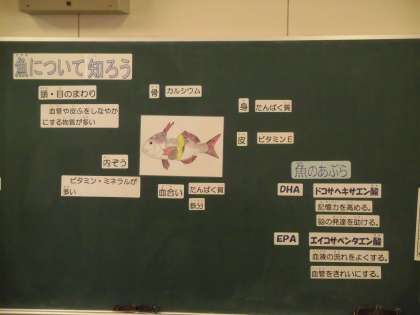 魚について知ろう
頭・目のまわり
血管や皮ふをしなやか
にする物質が多い
骨
カルシウム
身
たんぱく質
皮
ビタミンE
内ぞう
ビタミン・ミネラルが
多い
血合い
たんぱく質
鉄分
魚のあぶら
DHA
ドコサヘキサエン酸
記憶力を高める。
脳の発達を助ける。
EPA
エイコサペンタエン酸
血液の流れをよくする。
血管をきれいにする。